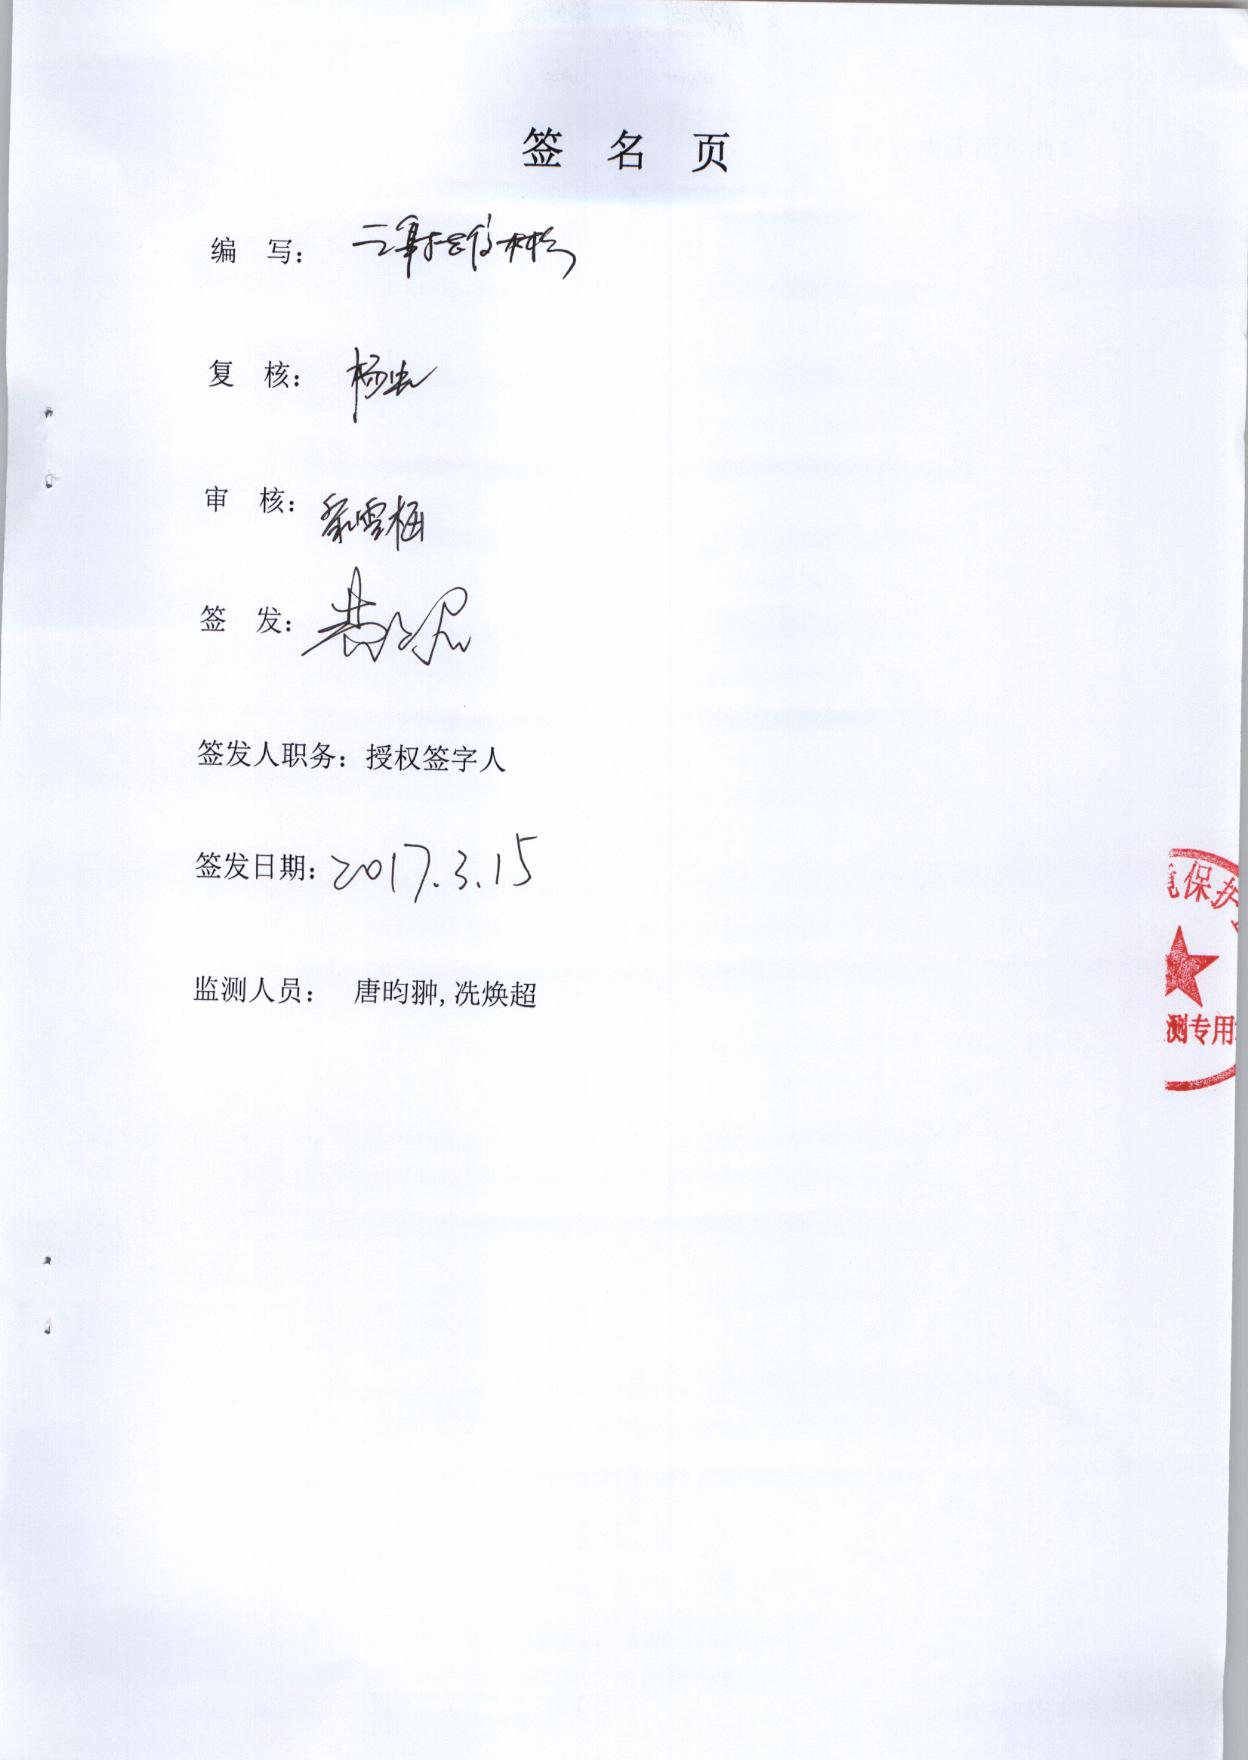 签 名 页
编 写：
复 核： 杨
审 核： 雪梅
签 发：
签发人职务：授权签字人
签发日期：2017.3.15
监测人员： 唐昀翀,冼焕超
境保护
测专用